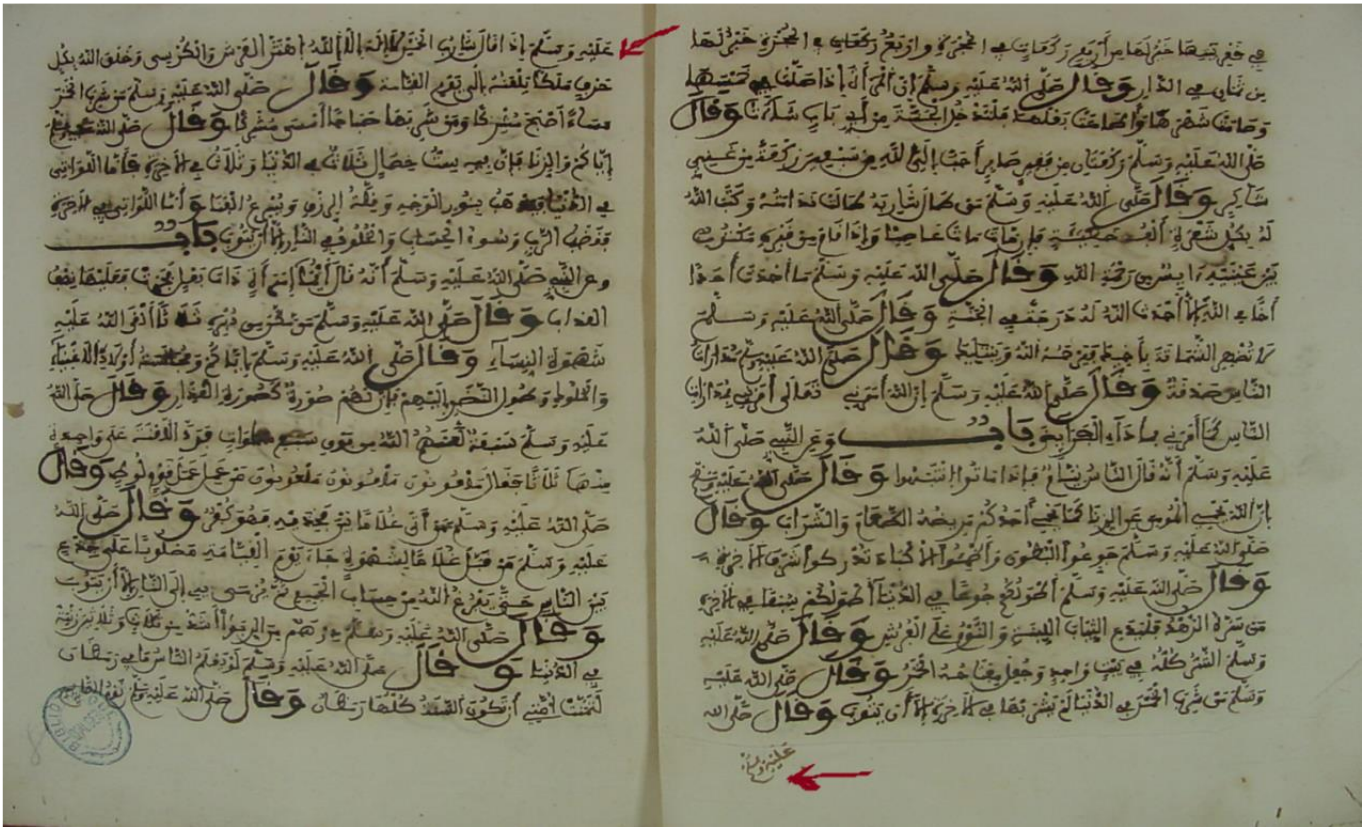 في قعر بيتها خير لها من أربع ركعات في الحجرة وأربع ركعات في الحجرة خير لها
من ثمان في الدار وقال صلى الله عليه وسلم إن المرأة إذا صلت خمستها
وصامت شهرها وأطاعت بعلها فلتدخل الجنة من أي باب شاءت وقال
صلى الله عليه وسلم ركعتان من فقير صابر أحب إلى الله من سبعين ركعة من غني
شاكر وقال صلى الله عليه وسلم من طال شاربه طالت ندامته وكتب الله
له بكل شعرة ألف فإن مات مات عاصيا وإذا قام من قبره مكتوب
بين عينيه آيس من رحمة الله وقال صلى الله عليه وسلم ما أحدث أحد
أخا في الله إلا أحدث الله له درجة في الجنة وقال صلى الله عليه وسلم
لا تظهر الشماتة بأخيك فيرحمه الله ويبتليك وقال صلى الله عليه وسلم مدارات
الناس صدقة وقال صلى الله عليه وسلم إن الله أمرني تعالى أمرني بمدارات
الناس كما أمرني بأداء الفرايض باب وعن النبي صلى الله
عليه وسلم أنه قال الناس نيام فإذا ماتوا انتبهوا وقال صلى الله عليه وسلم
إن الله يحمي المومن عن الدنيا كما يحمي أحدكم مريضه الطعام والشراب وقال
صلى الله عليه وسلم جوعوا البطون وأظمئوا الأكباد تدركوا شرف الآخرة
وقال صلى الله عليه وسلم أطولكم جوعا في الدنيا أطولكم شبعا في الآخرة
من سره الزهد فليدع الثياب اللين والنوم على الفرش وقال صلى الله عليه
وسلم الشر كله في بيت واحد وجعل مفتاحه الخمر وقال صلى الله عليه
وسلم من شرب الخمر في الدنيا لم يشربها في الآخرة إلا أن يتوب وقال صلى الله
عليه وسلم
عليه وسلم إذا قال شارب الخمر لا إله إلا الله اهتز العرش والكرسي وخلق الله بكل
حرف ملكا يلعنه إلى يوم القيامة وقال صلى الله عليه وسلم من شرب الخمر
مساء أصبح مشركا ومن شربها صباحا أمسى مشركا وقال صلى الله عليه وسلم
إياكم والزنا فإن فيه ست خصال ثلاث في الدنيا وثلاث في الآخرة فأما اللواتي
في الدنيا يذهب بنور الوجه وقلة الرزق ويسرع الفنا وأما اللواتي في الآخرة
فغضب الرب وسوء الحساب والخلود في النار إلا أن يتوب باب
وعن النبي صلى الله عليه وسلم أنه قال أيما امرأة ذات بعل فعليها نصف
العذاب وقال صلى الله عليه وسلم من دبره ثلاثا ألقى الله عليه
شهوة النساء وقال صلى الله عليه وسلم إياكم أولاد الأغنياء
والملوك النظر إليهم فإن لهم صورة كصورة العذار وقال صلى الله
عليه وسلم سبعة لعنهم الله من فوق سبع سماوات فرد اللعنة على واحدة
منها ثلاثا فقال ملعون ملعون ملعون من عمل عمل قوم لوط وقال
صلى الله عليه وسلم من أتى غلاما فهو كفر وقال صلى الله
عليه وسلم من قبل غلاما لشهوة جاء يوم القيامة مصلوبا على جذع
بين الناس حتى يفرغ الله من حساب الجميع ثم يرمى به إلى النار إلا أن يتوب
وقال صلى الله عليه وسلم درهم من الربوا أشد من ثلاث وثلاثين زنية
في الدنيا وقال صلى الله عليه وسلم لو علم الناس ما في رمضان
لتمنت أمتي أن تكون السنة كلها رمضان وقال صلى الله عليه وسلم نوم